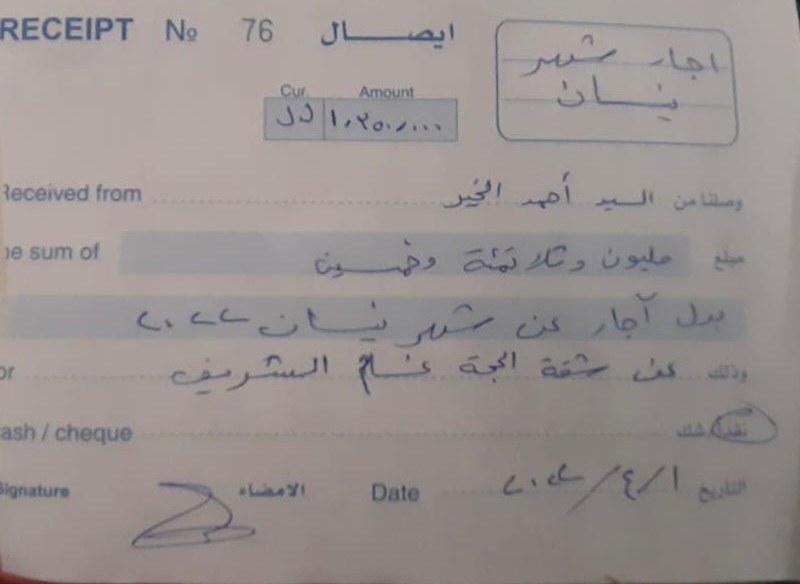 RECEIPT № 76 ايصال
اجار شهر
نيسان
Cur. Amount
ل.ل ١,٣٥٠,٠٠٠
Received from السيد أحمد الخير وصلنا من
he sum of مليون وثلاثمئة وخمسين مبلغ
بدل آجار عن شهر نيسان ٢٠٢٢
or عن شقة الحجة الشريف وذلك
ash / cheque نقداً / شك
Signature الامضاء Date ١/٤/٢٠٢٢ التاريخ